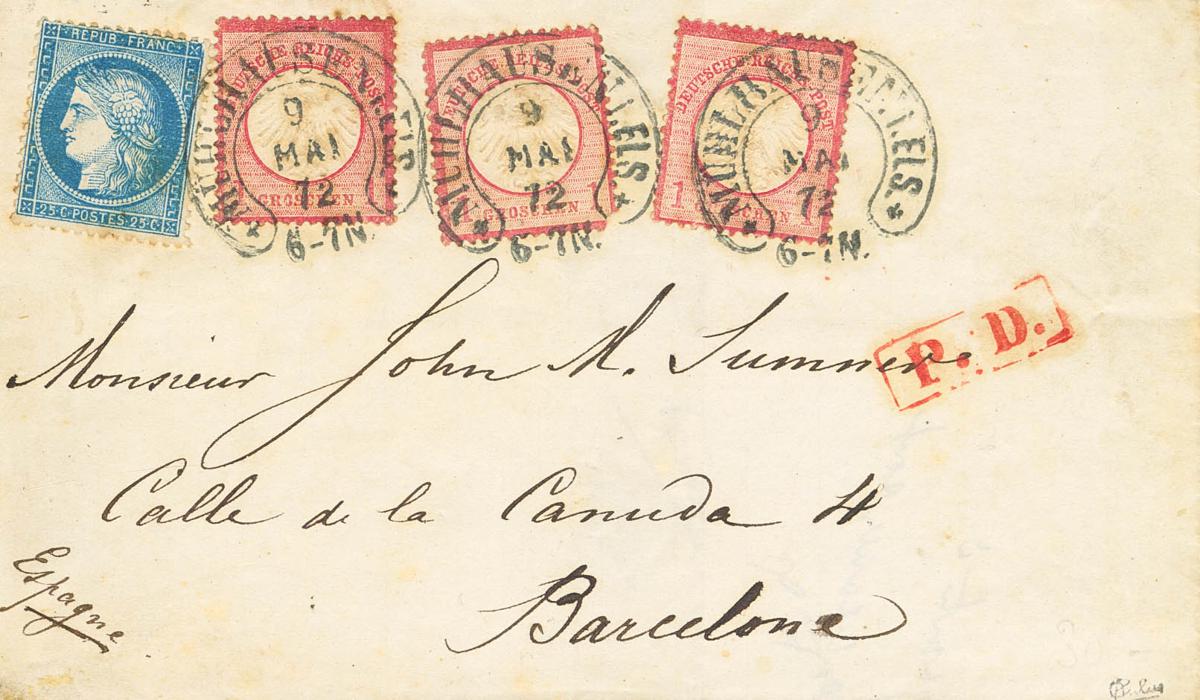 REPUB·FRANC
25·C·POSTES·25·C
DEUTSCHE REICHS-POST
1 GROSCHEN 1
MÜHLHAUSEN I. ELS.
9
MAI
72
6-7N.
DEUTSCHE REICHS-POST
1 GROSCHEN 1
MÜHLHAUSEN I. ELS.
9
MAI
72
6-7N.
DEUTSCHE REICHS-POST
1 GROSCHEN 1
MÜHLHAUSEN I. ELS.
9
MAI
72
6-7N.
P. D.
Monsieur John M. Sumner
Calle de la Canuda 4
Espagne
Barcelone